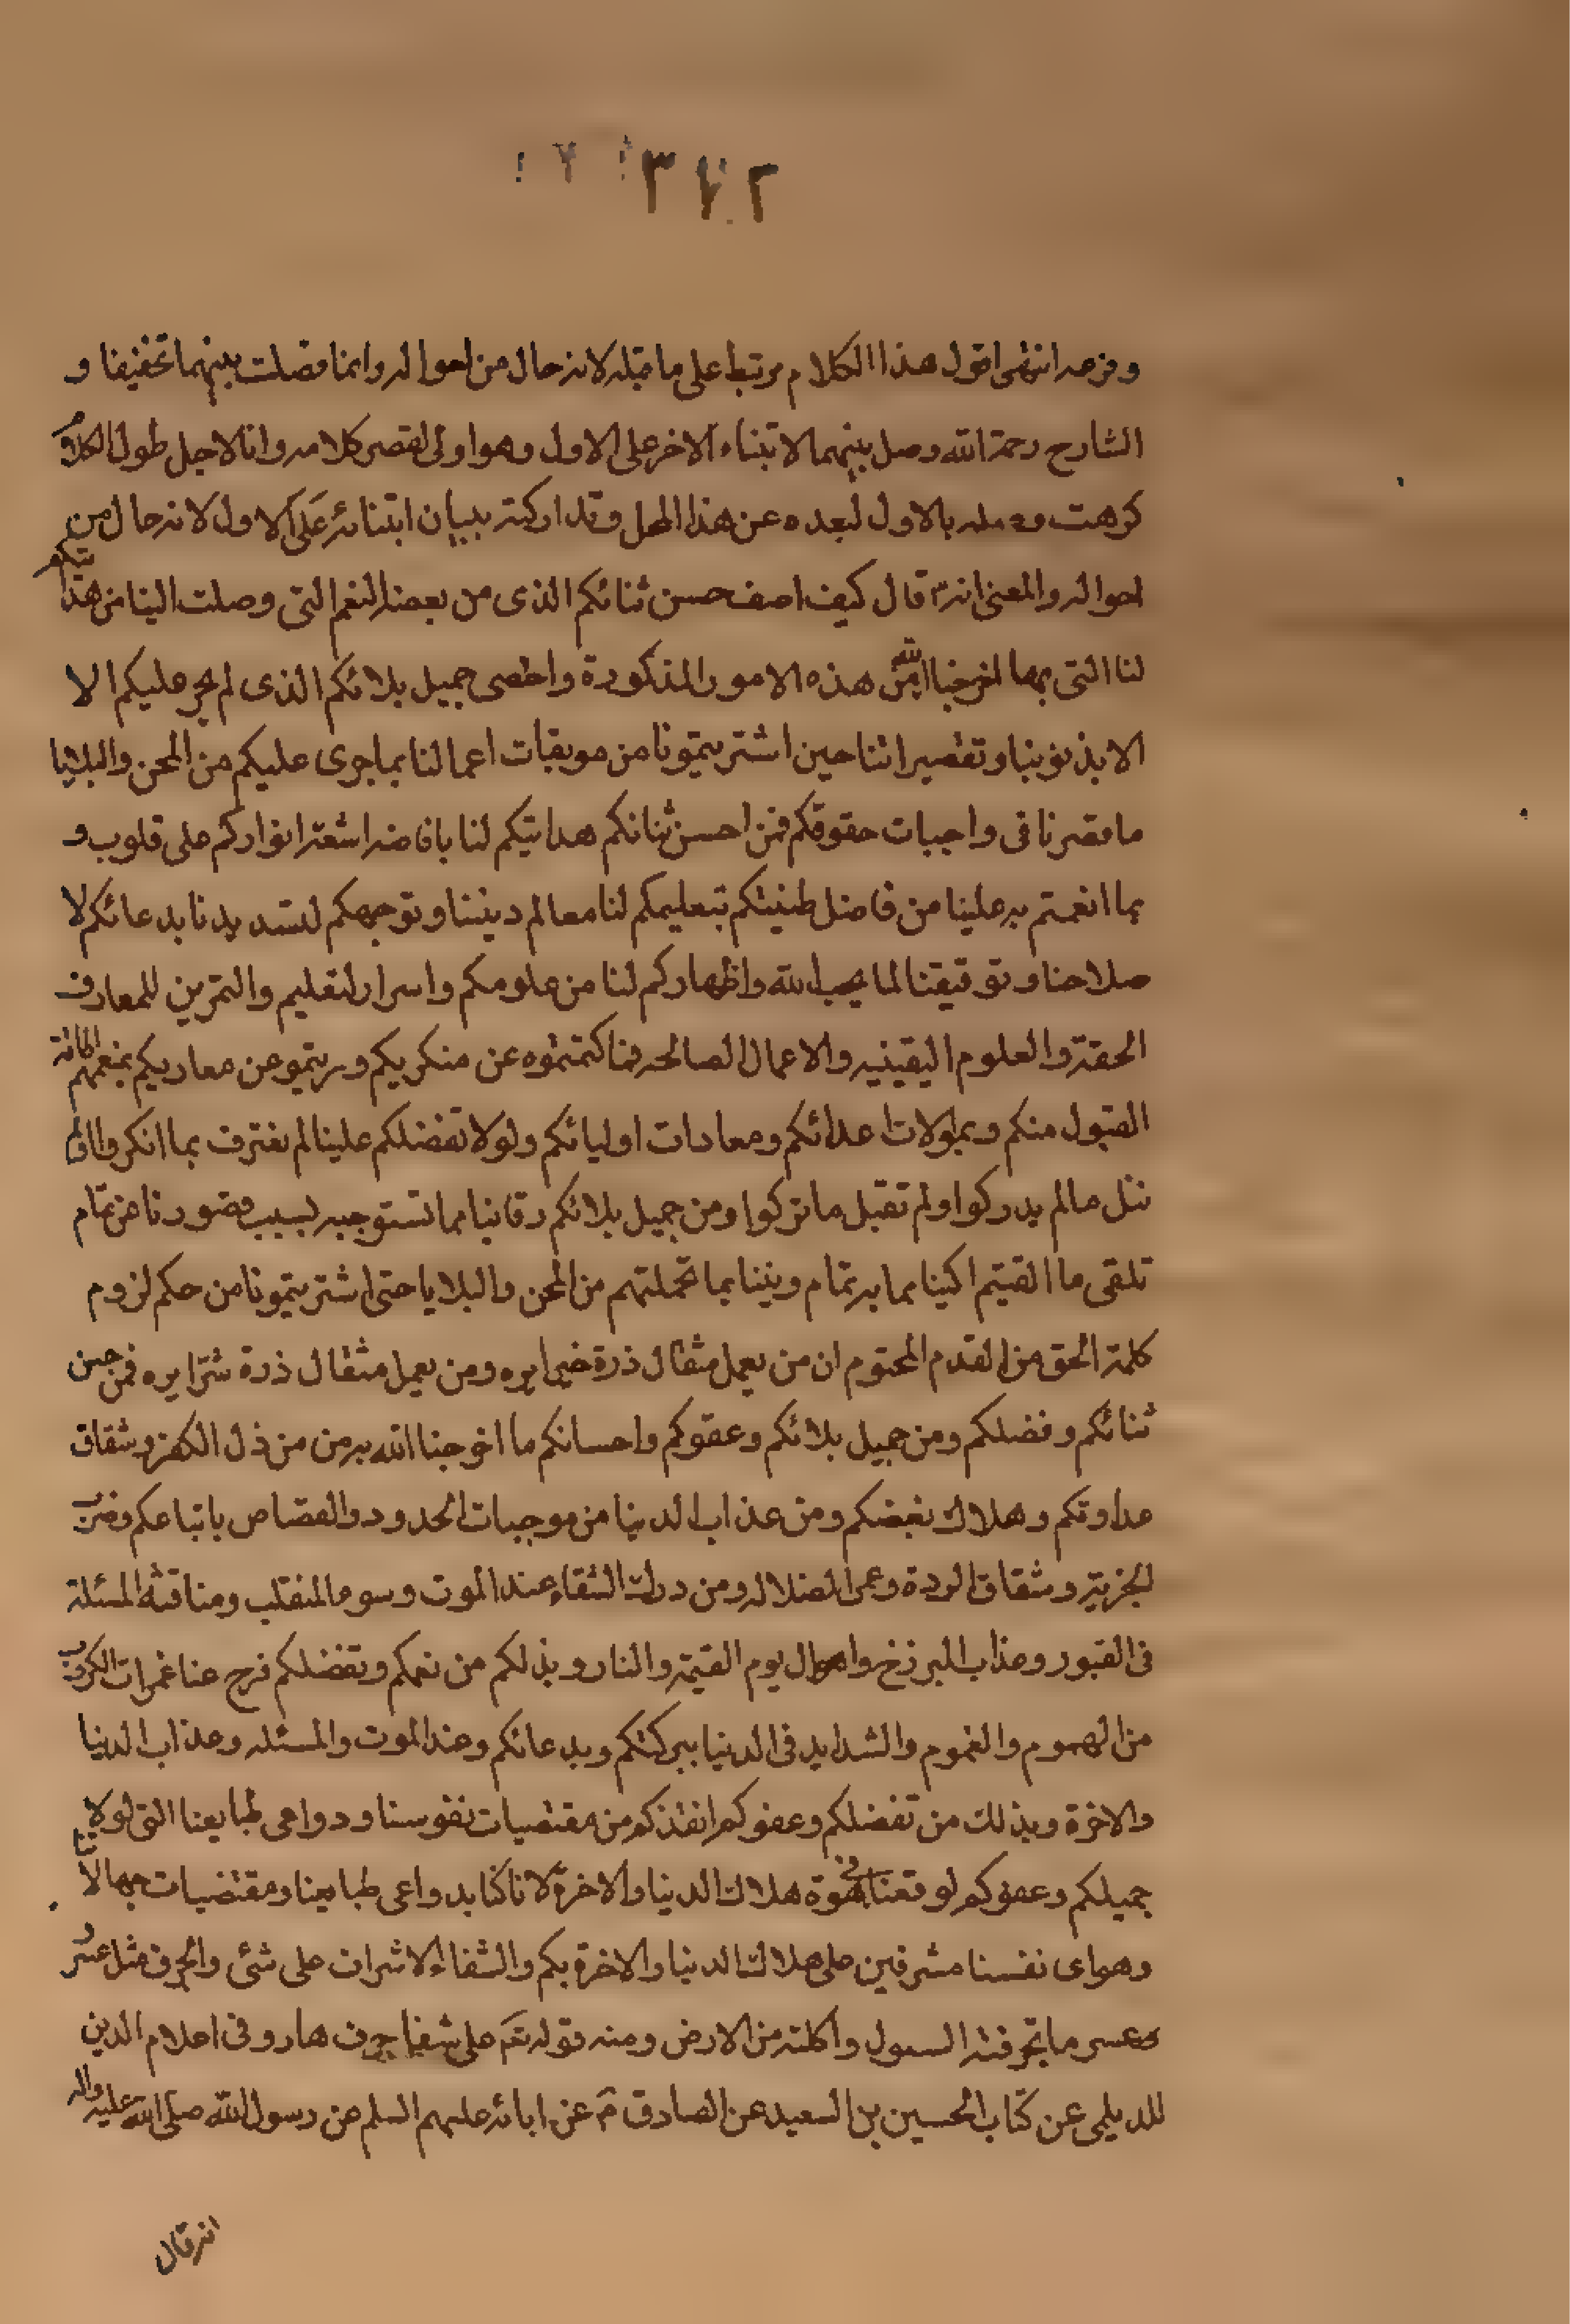 ٣٧٢
وفرحه انتهى اقول هذا الكلام مرتبط على ما قبله لانه حال من احواله وانما فصلت بينهما تخفيفا و
الشارح رحمة الله وصل بينهما لابتناء الاخر على الاول وهو اولى لقصر كلامه وانا لاجل طول الكلام
كرهت وصله بالاول لبعده عن هذا المحل وتداركته ببيان ابتنائه على الاول لانه حال من
احواله والمعنى انه قال كيف اصف حسن ثنائكم الذى من بعضه النعم التى وصلت الينا من هدايتكم
لنا التى بها اخرجنا الله من هذه الامور المذكورة واحصى جميل بلائكم الذى لم يجر عليكم الا
الا بذنوبنا وتقصيراتنا حين اشتريتمونا من موبقات اعمالنا بما جرى عليكم من المحن والبلايا
ما قصرنا فى واجبات حقوقكم فمن احسن ثنائكم هدايتكم لنا بافاضه اشعة انواركم على قلوب و
بما انعمتم به علينا من فاضل طينتكم بتعليمكم لنا معالم ديننا وتوجهكم لتسديدنا بدعائكم لا
صلاحنا وتوفيقنا لما يحب الله واظهاركم لنا من علومكم واسرار التعليم والتمرين للمعارف
الحقة والعلوم اليقينيه والاعمال الصالحه فما كتمتموه عن منكريكم وسريتموه عن معاديكم بمنعهم
القبول منكم وبموالات اعدائكم ومعادات اوليائكم ولولا تفضلكم علينا لم نعترف بما انكروا
ننل ما لم يدركوا ولم تقبل ما تركوا ومن جميل بلائكم رقابنا مما تستوجبه بسبب قصورنا عن تمام
تلقى ما القيتم الينا مما به تمام ديننا بما تحملتم من المحن والبلايا حتى اشتريتمونا من حكم لزوم
كلمة الحق من القدم المحتوم ان من يعمل مثقال ذرة خيرا يره ومن يعمل مثقال ذرة شرا يره فمن حسن
ثنائكم وفضلكم ومن جميل بلائكم وعفوكم واحسانكم ما اخرجنا الله به من من ذل الكفر وشقاق
عداوتكم وهلاك بغضكم ومن عذاب الدنيا من موجبات الحدود والقصاص باتباعكم وضرب
الجزية وشقاق الردة وعمى الضلاله ومن درك الشقاء عند الموت وسوء المنقلب ومناقشه المسئلة
فى القبور وعذاب البرزخ واهوال يوم القيمة والنار وبذلكم من نعمكم وتفضلكم فرج عنا غمرات الكروب
من الهموم والغموم والشدايد فى الدنيا ببركتكم وبدعائكم وعند الموت والمسئله وعذاب الدنيا
والاخرة وبذلك من تفضلكم وعفوكم انقذكم من مقتضيات نفوسنا ودواعى طبايعنا التى لولا
جميلكم وعفوكم لوقعنا فى هوة هلاك الدنيا والاخرة لانا كنا بدواعى طبايعنا ومقتضيات جهالاتنا
وهواى نفسنا مشرفين على هلاك الدنيا والاخرة بكم والشفاء الاشراف على شئ والجرف مثل عسر
وعسر ما تجرفته السيول واكلته من الارض ومنه قوله تعالى على شفا جرف هار وفى اعلام الدين
للديلمى عن كتاب الحسين بن السعيد عن الصادق ع عن ابائه عليهم السلم عن رسول الله صلى الله عليه واله
انه قال